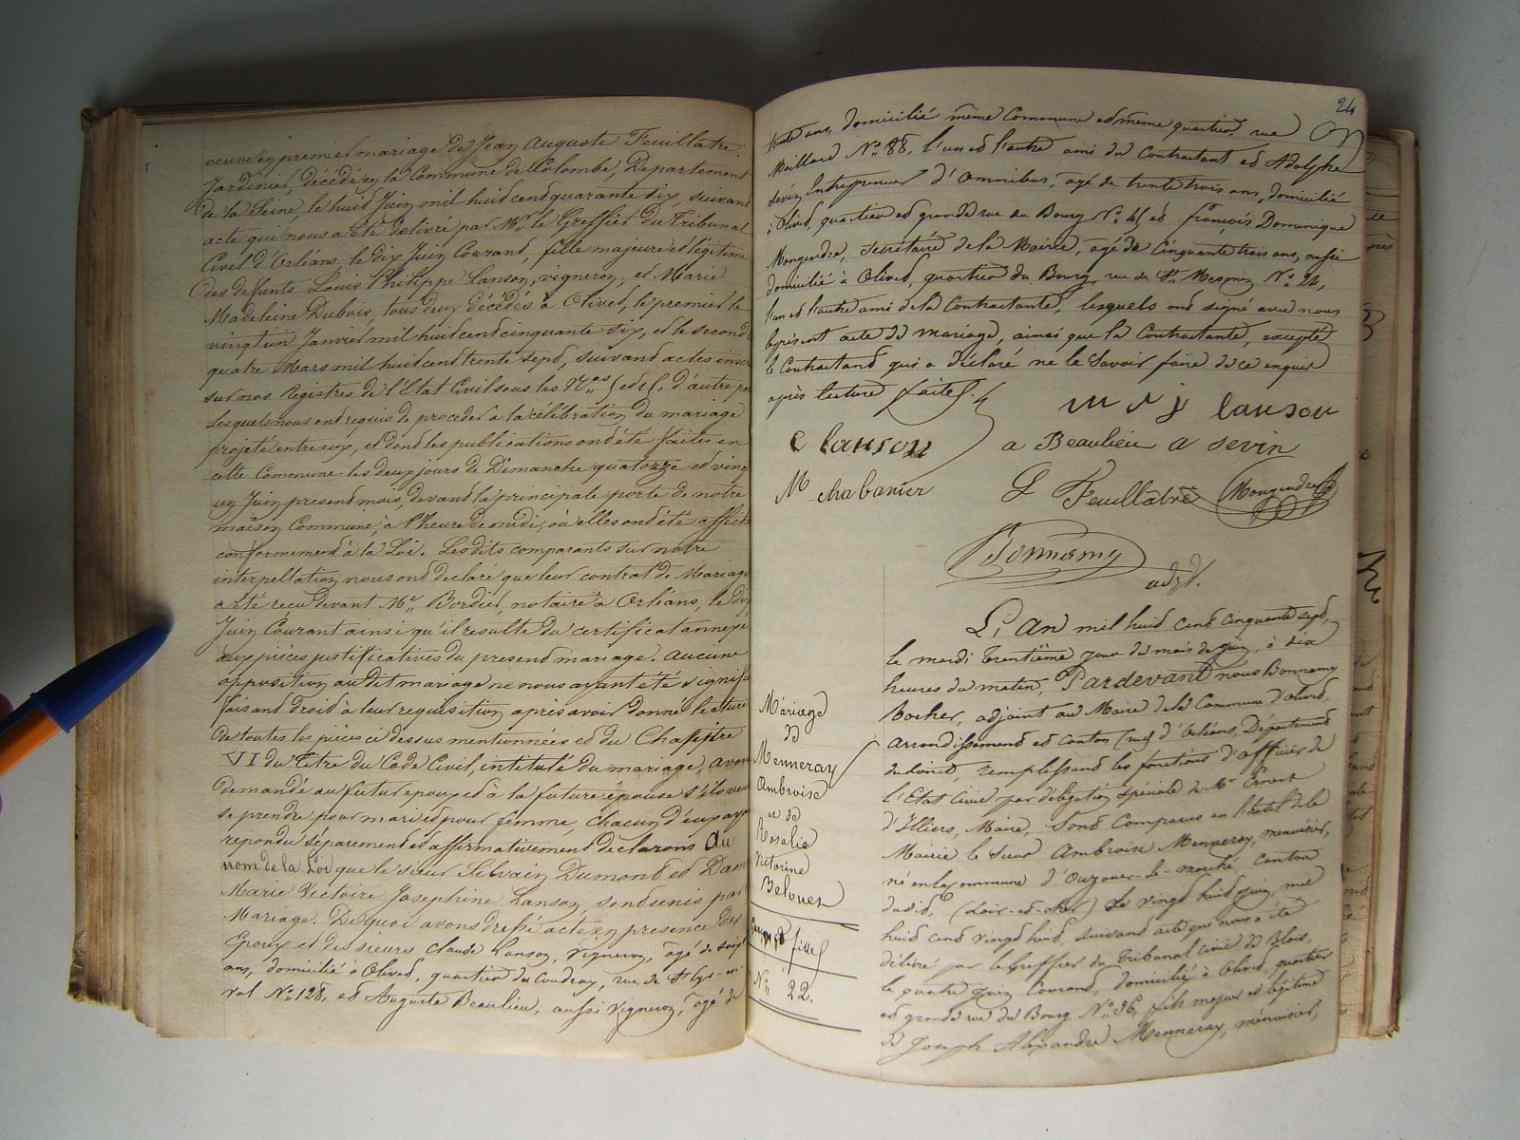 veuve en premier mariage de Jean Auguste Feuillatre
Jardinier, décédé en la Commune de Colombe, Département
de la Seine, le huit Juin mil huit cent quarante six, suivant
acte qui nous a été délivré par Mr. le Greffier du Tribunal
Civil d'Orléans, le dix Juin Courant, fille majeure et légitime
des defunts Louis Philippe Lanson, vigneron, et Marie
Madeleine Dubois, tous deux décédés à Olivet, le premier le
vingt un Janvier mil huit cent cinquante six, et le second
quatre Mars mil huit cent trente sept, suivant actes
sur nos registres de l'Etat Civil sous les Nos
Lesquels nous ont requis de proceder à la célébration du mariage
projeté entre eux, et dont les publications ont été faites en
cette Commune les deux jours de Dimanche quatorze et vingt
un Juin present mois, devant la principale porte de notre
maison Commune, à l'heure de midi, où elles ont été
conformement à la Loi. Lesdits comparants sur notre
interpellation nous ont declaré que leur contrat de Mariage
a été recu devant Me. Bordier, notaire à Orléans, le dix
Juin Courant ainsi qu'il resulte du certificat annexé
aux pièces justificatives du present mariage. Aucune
opposition audit mariage ne nous ayant été
faisant droit à leur requisition, après avoir donné lecture
de toutes les pièces ci dessus mentionnées et du Chapitre
VI du Titre du Code Civil, intitulé du mariage, avons
demandé au futur epoux et à la future épouse s'ils
se prendre pour mari et pour femme, chacun d'eux
repondu séparement et affirmativement declarons au
nom de la Loi que le sieur Silvain Dumont et Dame
Marie Victoire Josephine Lanson sont unis par
Mariage. De quoi avons dressé acte en presence des
Epoux et des sieurs Claude Lanson, Vigneron, agé de
ans, domicilié à Olivet, quartier du Coudray, rue de
val No. 128, et Auguste Beaulieu, aussi vigneron, agé de
24
ans, domicilié même Commune et même quartier, rue
No. 88, l'un et l'autre ami du Contractant et Adolphe
Sevin, Entrepreneur d'Omnibus, agé de trente trois ans, domicilié
à Olivet, quartier et grande rue du Bourg No. et François Dominique
Mongendre, Secrétaire de la Mairie, agé de Cinquante trois ans, aussi
domicilié à Olivet, quartier du Bourg, rue de St. Mesmin No. 24,
l'un et l'autre ami de la Contractante, lesquels ont signé avec nous
le présent acte de mariage, ainsi que la Contractante, excepté
le Contractant qui a déclaré ne le Savoir faire de ce enquis
après lecture faite.
m v j lanson
C lanson a Beaulieu a sevin
M chabanier Feuillatre Mongendre
Bonnemy
adjt.
L'An mil huit cent cinquante sept,
le mardi trentième jour du mois de Juin, à dix
heures du matin, Pardevant nous Bonnemy
Bocher, adjoint au Maire de la Commune d'Olivet,
arrondissement et canton d'Orléans, Département
du Loiret, remplissant les fonctions d'officier de
l'Etat Civil par délégation spéciale de Mr.
d'Illiers, Maire, Sont Comparus en l'hôtel de la
Mairie le Sieur Ambroise Menneray, menuisier,
né en la commune d'Ouzouer-le-marché Canton
dudit, (Loir-et-cher) le vingt huit Juin mil
huit cent vingt huit, suivant acte qui nous a été
délivré par le Greffier du Tribunal civil de Blois,
le quatre Juin Courant, domicilié à Olivet, quartier
et grande rue du Bourg No. 36, fils majeur et légitime
de Joseph Alexandre Menneray, menuisier,
Mariage
de
Menneray
Ambroise
et de
Rosalie
Victorine
Belouet
garçon et fille
No. 22.